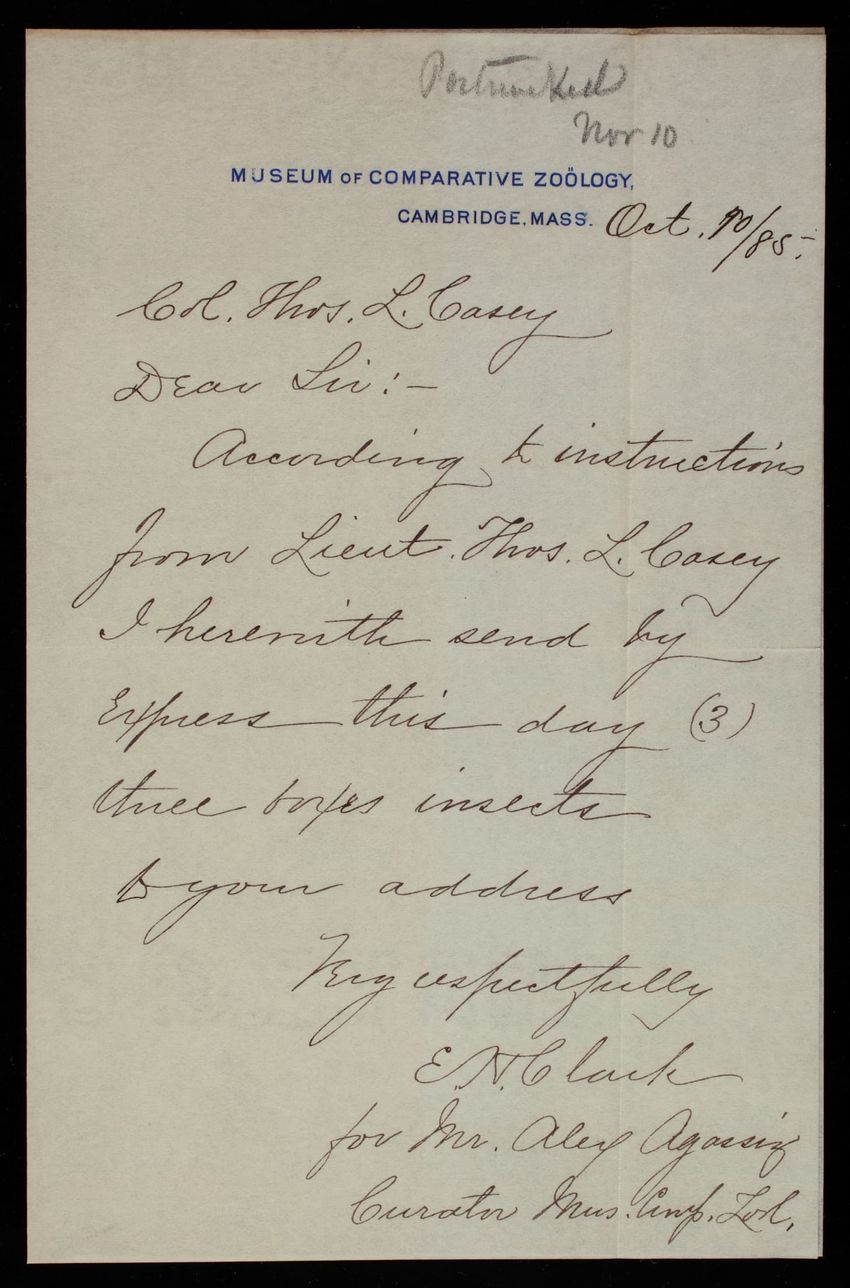 Postmarked
Nov 10
MUSEUM OF COMPARATIVE ZOÖLOGY,
CAMBRIDGE, MASS. Oct. 10/85.
Col. Thos. L. Casey
Dear Sir:—
According to instructions
from Lieut. Thos. L. Casey
I herewith send by
Express this day (3)
three boxes insects
to your address
Very respectfully
E. H. Clark
for Mr. Alex Agassiz
Curator Mus. Comp. Zool.